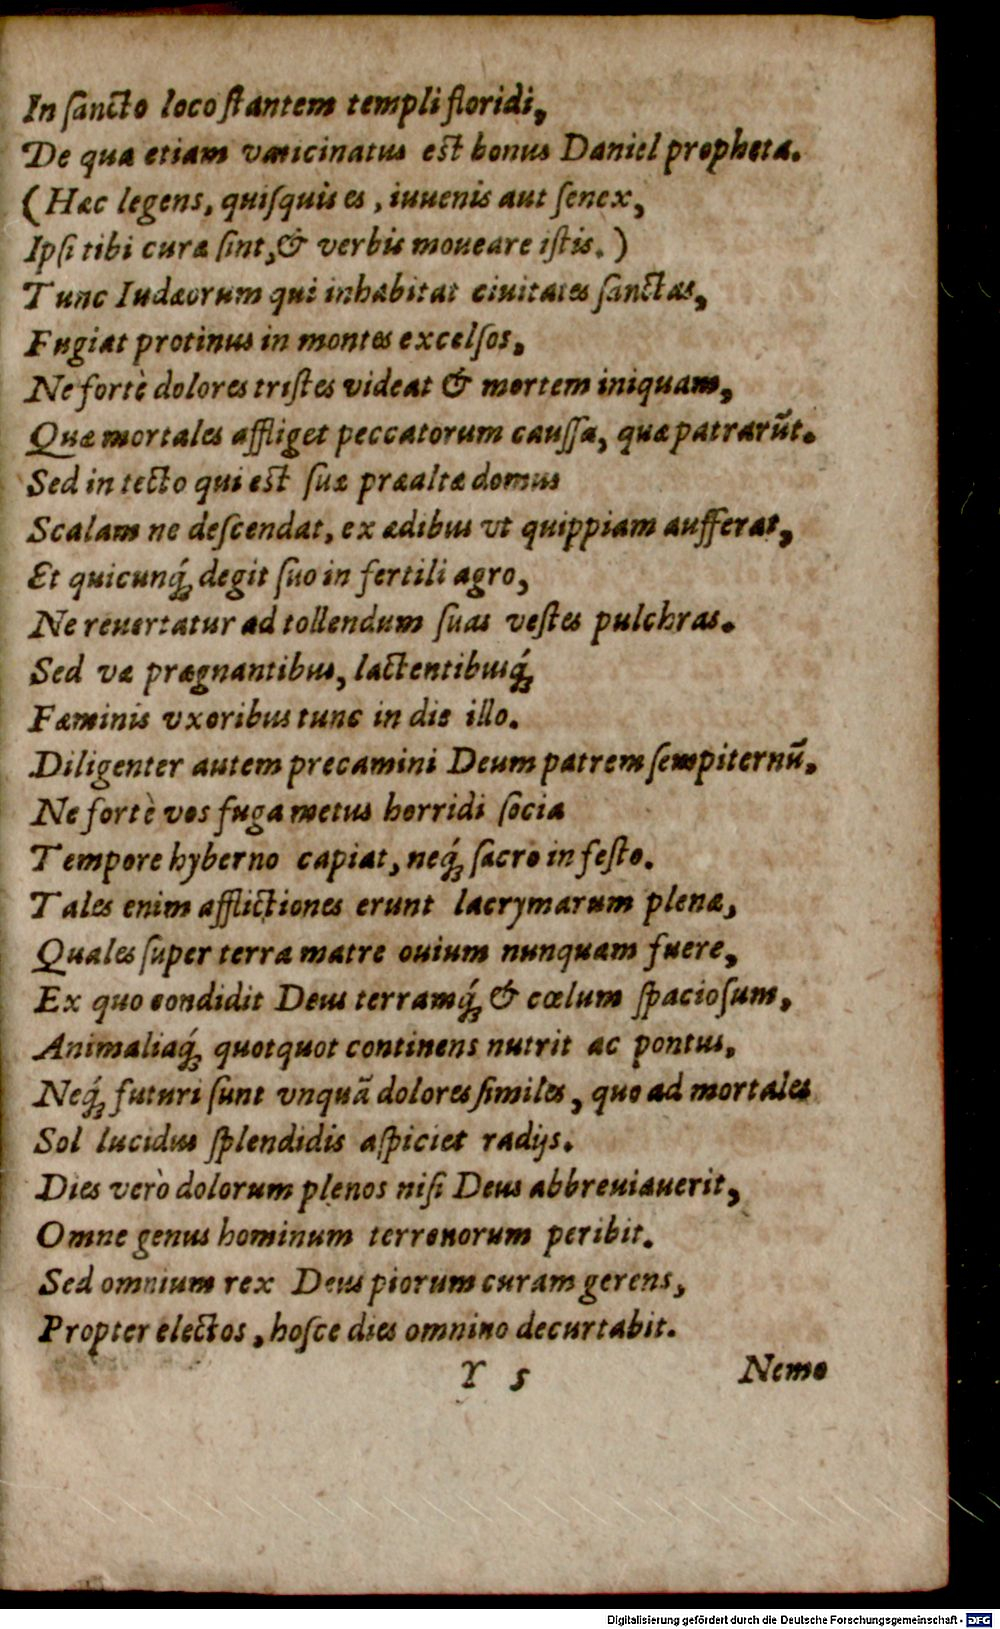 In ſancto loco ſtantem templi floridi,
De qua etiam vaticinatus est bonus Daniel propheta.
(Hæc legens, quiſquis es, iuuenis aut ſenex,
Ipſi tibi curæ ſint, & verbis moueare iſtis.)
Tunc Iudæorum qui inhabitat ciuitates ſanctas,
Fugiat protinus in montes excelſos,
Ne fortè dolores triſtes videat & mortem iniquam,
Quæ mortales affliget peccatorum cauſſa, quæ patrarūt.
Sed in tecto qui est ſuæ præaltæ domus
Scalam ne deſcendat, ex ædibus vt quippiam aufferat,
Et quicunq́; degit ſuo in fertili agro,
Ne reuertatur ad tollendum ſuas veſtes pulchras.
Sed væ prægnantibus, lactentibusq́;
Fæminis vxoribus tunc in die illo.
Diligenter autem precamini Deum patrem ſempiternū,
Ne fortè vos fuga metus horridi ſocia
Tempore hyberno capiat, neq́; ſacro in feſto.
Tales enim afflictiones erunt lacrymarum plenæ,
Quales ſuper terra matre ouium nunquam fuere,
Ex quo condidit Deus terramq́; & cœlum ſpacioſum,
Animaliaq́; quotquot continens nutrit ac pontus,
Neq́; futuri ſunt vnquā dolores ſimiles, quo ad mortales
Sol lucidus ſplendidis aſpiciet radijs.
Dies verò dolorum plenos niſi Deus abbreuiauerit,
Omne genus hominum terrenorum peribit.
Sed omnium rex Deus piorum curam gerens,
Propter electos, hoſce dies omnino decurtabit.
Y 5
Nemo
Digitalisierung gefördert durch die Deutsche Forschungsgemeinschaft - DFG